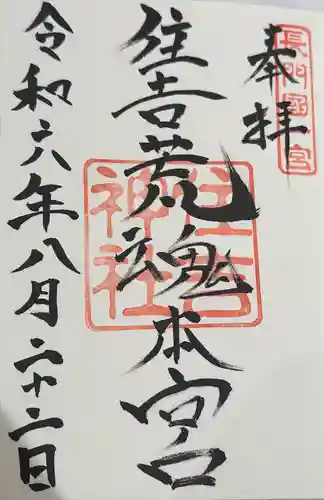 奉拝
長門國一宮
住吉荒魂本宮
住吉神社
令和六年八月二十二日